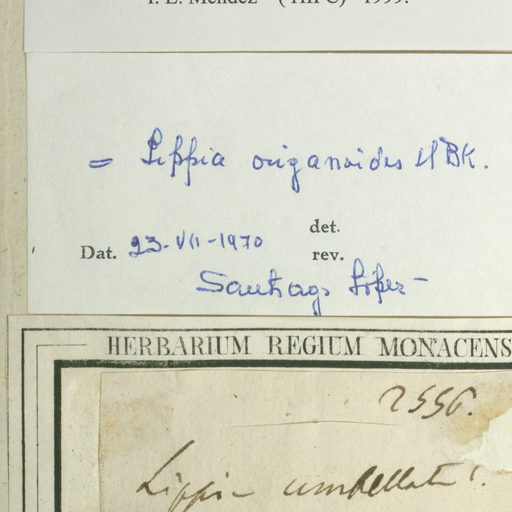 = Lippia origanoides HBK.
det.
Dat. 23-VII-1970
rev.
Santiago López
HERBARIUM REGIUM MONACENS
2556.
Lippia umbellata